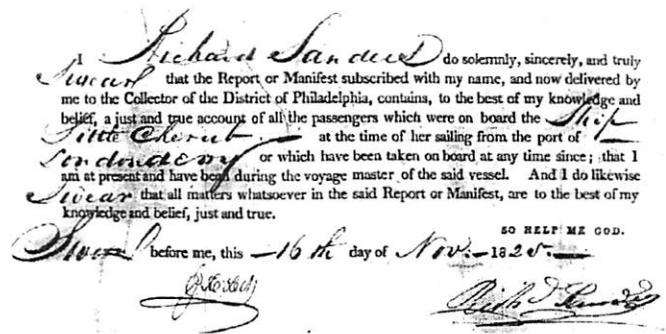 I Richard Sanders do solemnly, sincerely, and truly
Swear that the Report or Manifest subscribed with my name, and now delivered by
me to the Collector of the District of Philadelphia, contains, to the best of my knowledge and
belief, a just and true account of all the passengers which were on board the Ship
Little Cherub — at the time of her sailing from the port of
Londonderry or which have been taken on board at any time since; that I
am at present and have been during the voyage master of the said vessel. And I do likewise
Swear that all matters whatsoever in the said Report or Manifest, are to the best of my
knowledge and belief, just and true.
SO HELP ME GOD.
Sworn before me, this —16th day of Nov. — 1825. —
Richd Sanders